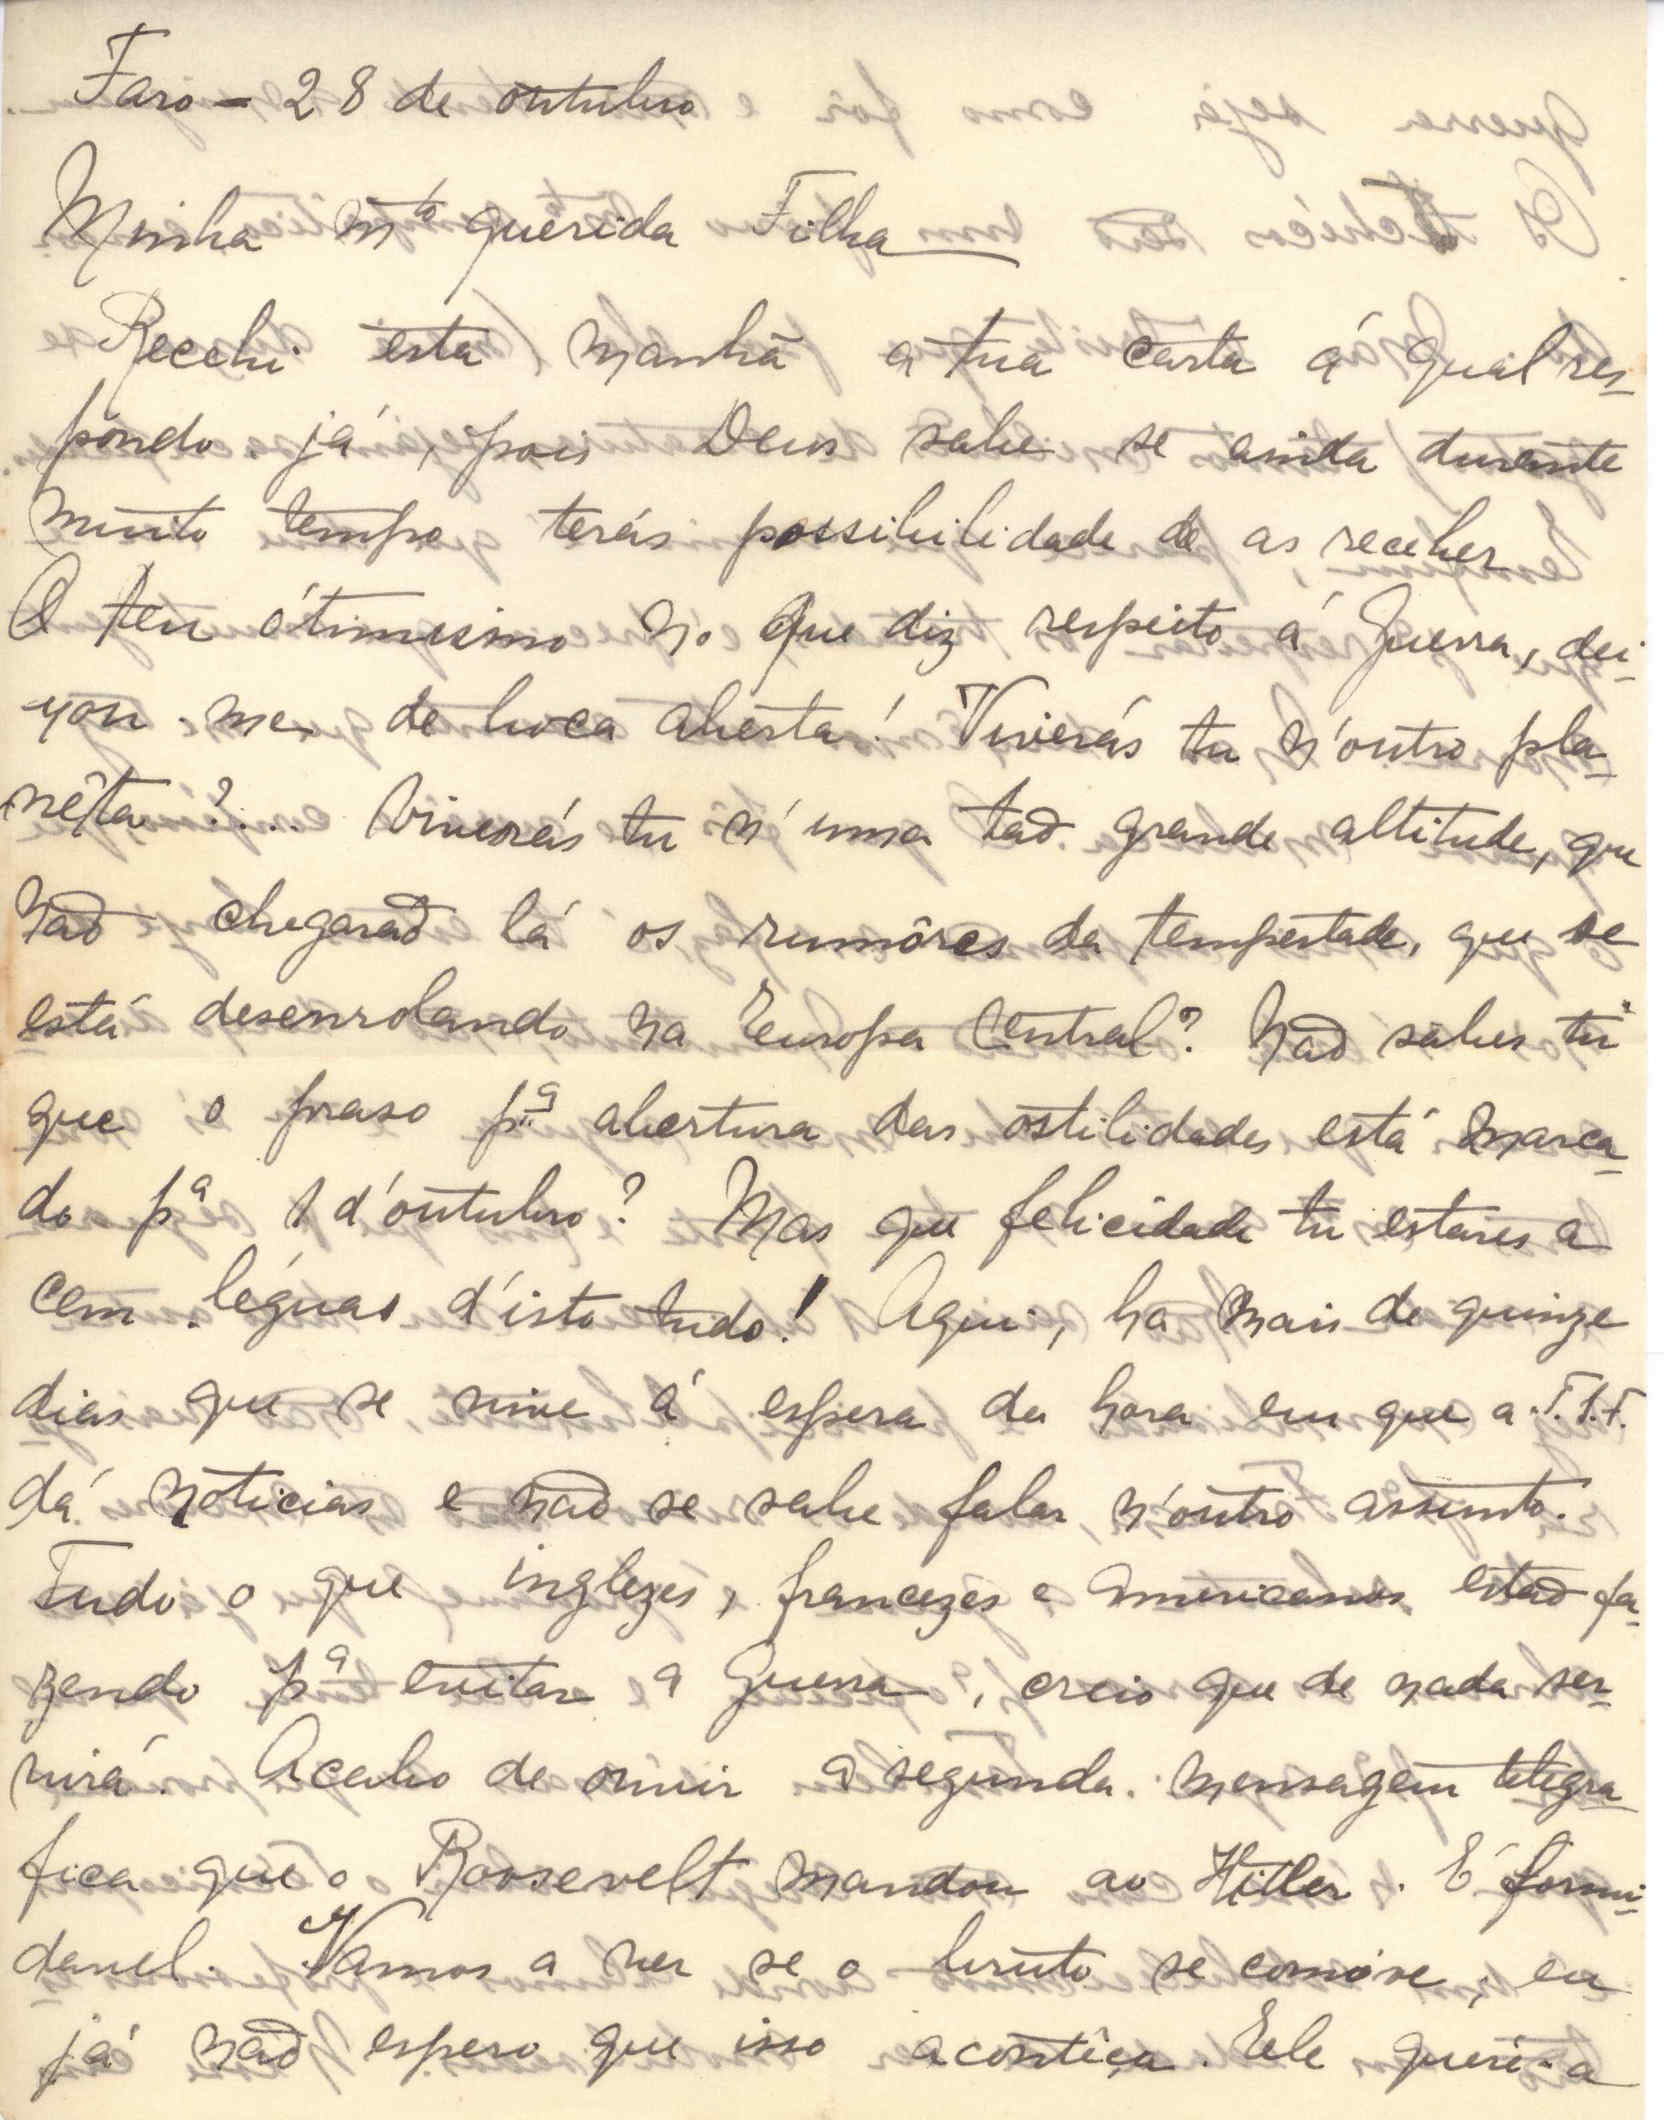 Faro - 28 de outubro
Minha mto querida Filha
Recebi esta manhã a tua carta á qual res-
pondo já, pois Deus sabe se ainda durante
muito tempo terás possibilidade de as receber
O teu ótimismo no que diz respeito á Guerra, dei-
xou-me de boca aberta! Viverás tu n'outro pla-
nêta?... Viverás tu n'uma tão grande altitude, que
não chegarão lá os rumôres da tempestade, que se
está desenrolando na Europa Central? Não sabes tu
que o praso pa abertura das ostilidades está marca-
do pa 1 d'outubro? Mas que felicidade tu estares a
cem léguas d'isto tudo! Aqui, ha mais de quinze
dias que se vive á espera da hora em que a T.S.F.
dá noticias e não se sabe falar n'outro assunto.
Tudo o que inglezes, francezes e americanos estão fa-
zendo pa evitar a Guerra, creio que de nada ser-
virá. Acabo de ouvir a segunda mensagem telegra-
fica que o Roosevelt mandou ao Hitler. É formi-
davel. Vamos a ver se o bruto se comóve; eu
já não espero que isso acontêça. Ele queri-a